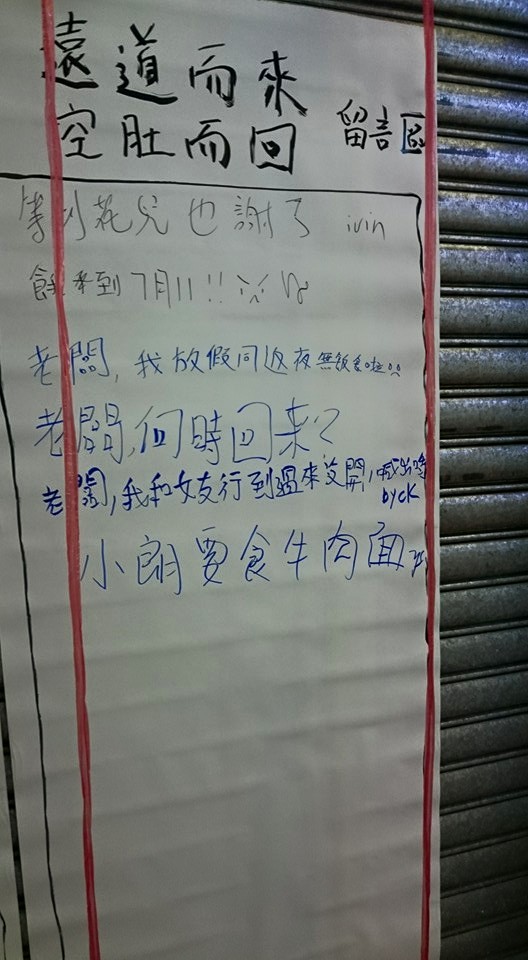 遠道而來
空肚而回 留言區
等到花兒也謝了 ivin
餓來到7月11!!
老闆,我放假同返夜無飯食啦!!
老闆,何時回来?
老闆,我和女友行到過來没開,喊出嚟 by CK
小朗要食牛肉面